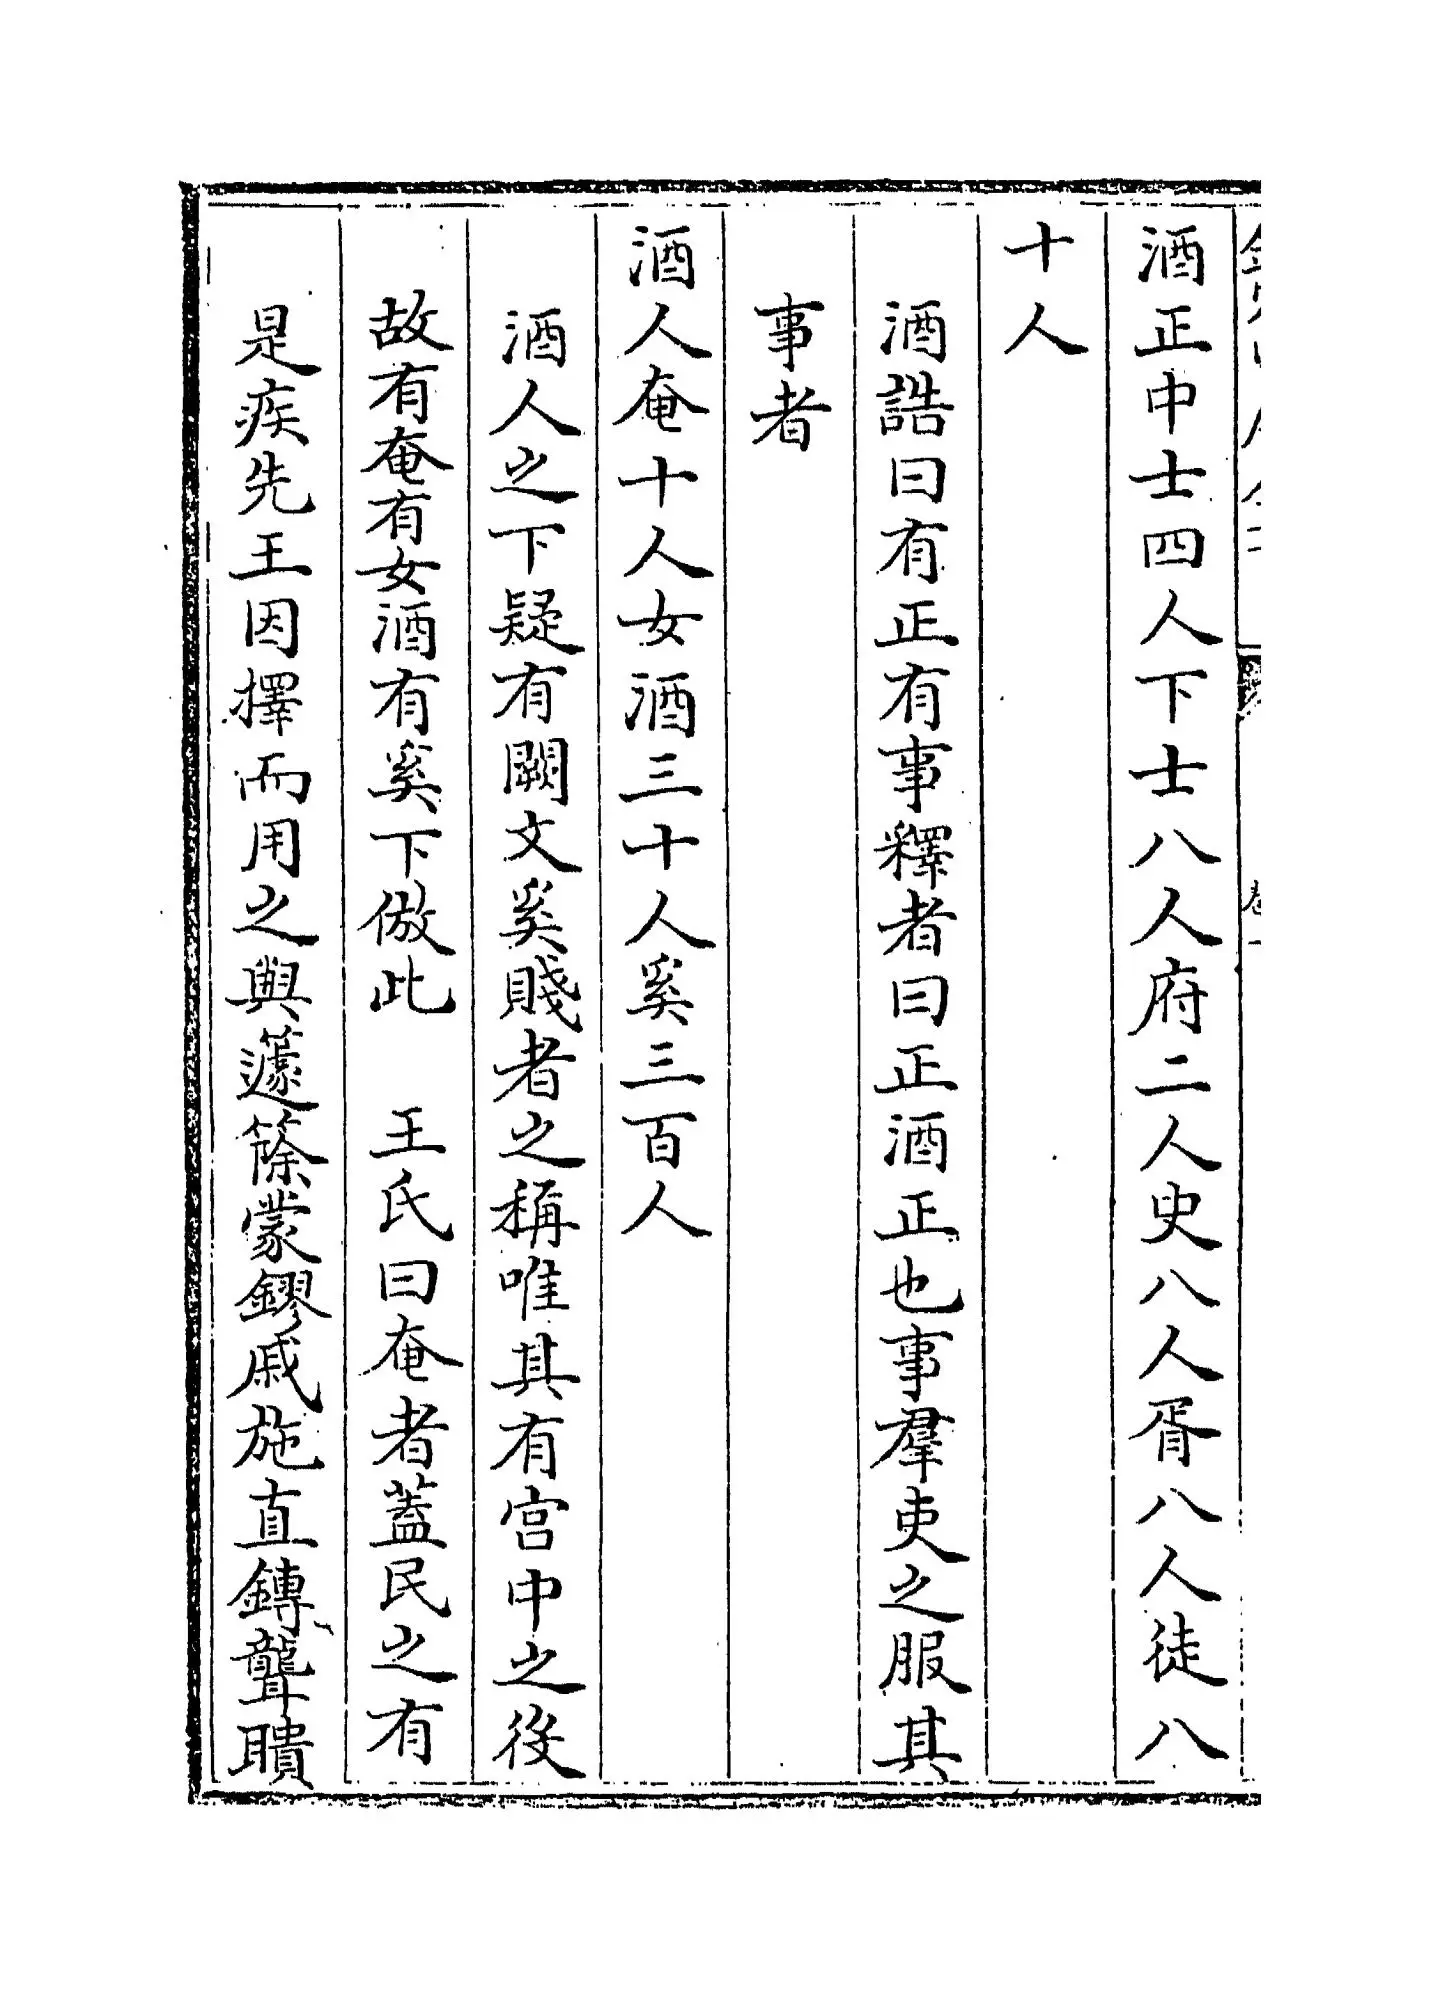 酒正中士四人下士八人府二人史八人胥八人徒八
十人
酒誥曰有正有事釋者曰正酒正也事羣吏之服其
事者
酒人奄十人女酒三十人奚三百人
酒人之下疑有闕文奚賤者之稱唯其有宫中之後
故有奄有女酒有奚下倣此　王氏曰奄者蓋民之有
是疾先王因擇而用之與蘧篨蒙鏐戚施直鏄聾聵